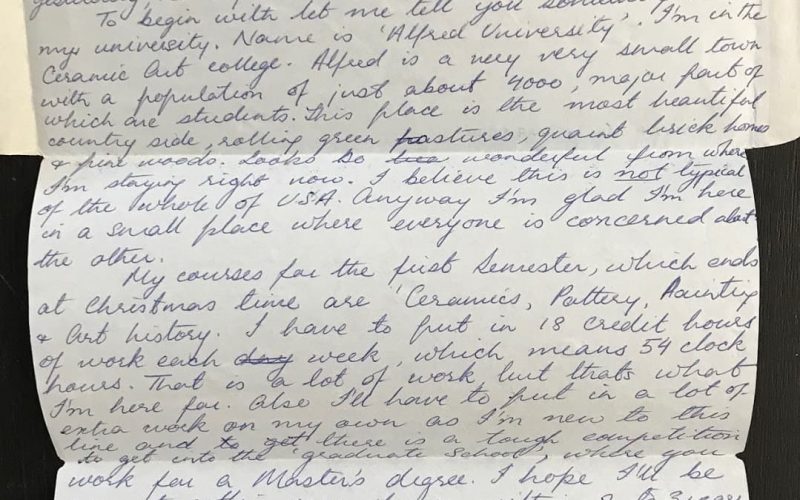 yesterday,
To begin with let me tell you
my university. Name is 'Alfred University'. I'm in the
Ceramic Art college. Alfred is a very very small town
with a population of just about 9000, major part of
which are students. This place is the most beautiful
country side, rolling green pastures, quaint brick homes
& pine woods. Looks so wonderful from where
I'm staying right now. I believe this is not typical
of the whole of USA. Anyway I'm glad I'm here
in a small place where everyone is concerned about
the other.
My courses for the first Semester, which ends
at Christmas time are 'Ceramics, Pottery, Painting
& Art history. I have to put in 18 credit hours
of work each day week, which means 54 clock
hours. That is a lot of work but thats what
I'm here for. Also I'll have to put in a lot of
extra work on my own as I'm new to this
line and to get there is a tough competition
to get into the 'graduate School', where you
work for a Master's degree. I hope I'll be